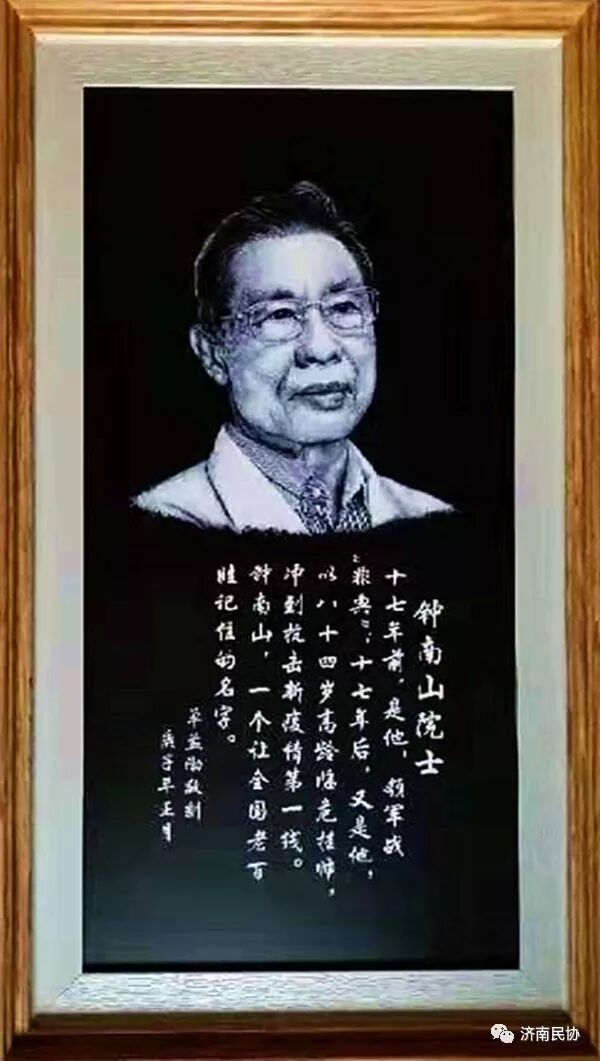 钟南山院士
十七年前，是他，领军战
“非典”；十七年后，又是他，
以八十四岁高龄临危挂帅，
冲到抗击新疫情第一线。
钟南山，一个让全国老百
姓记住的名字。
敬刻
庚子年正月
济南民协